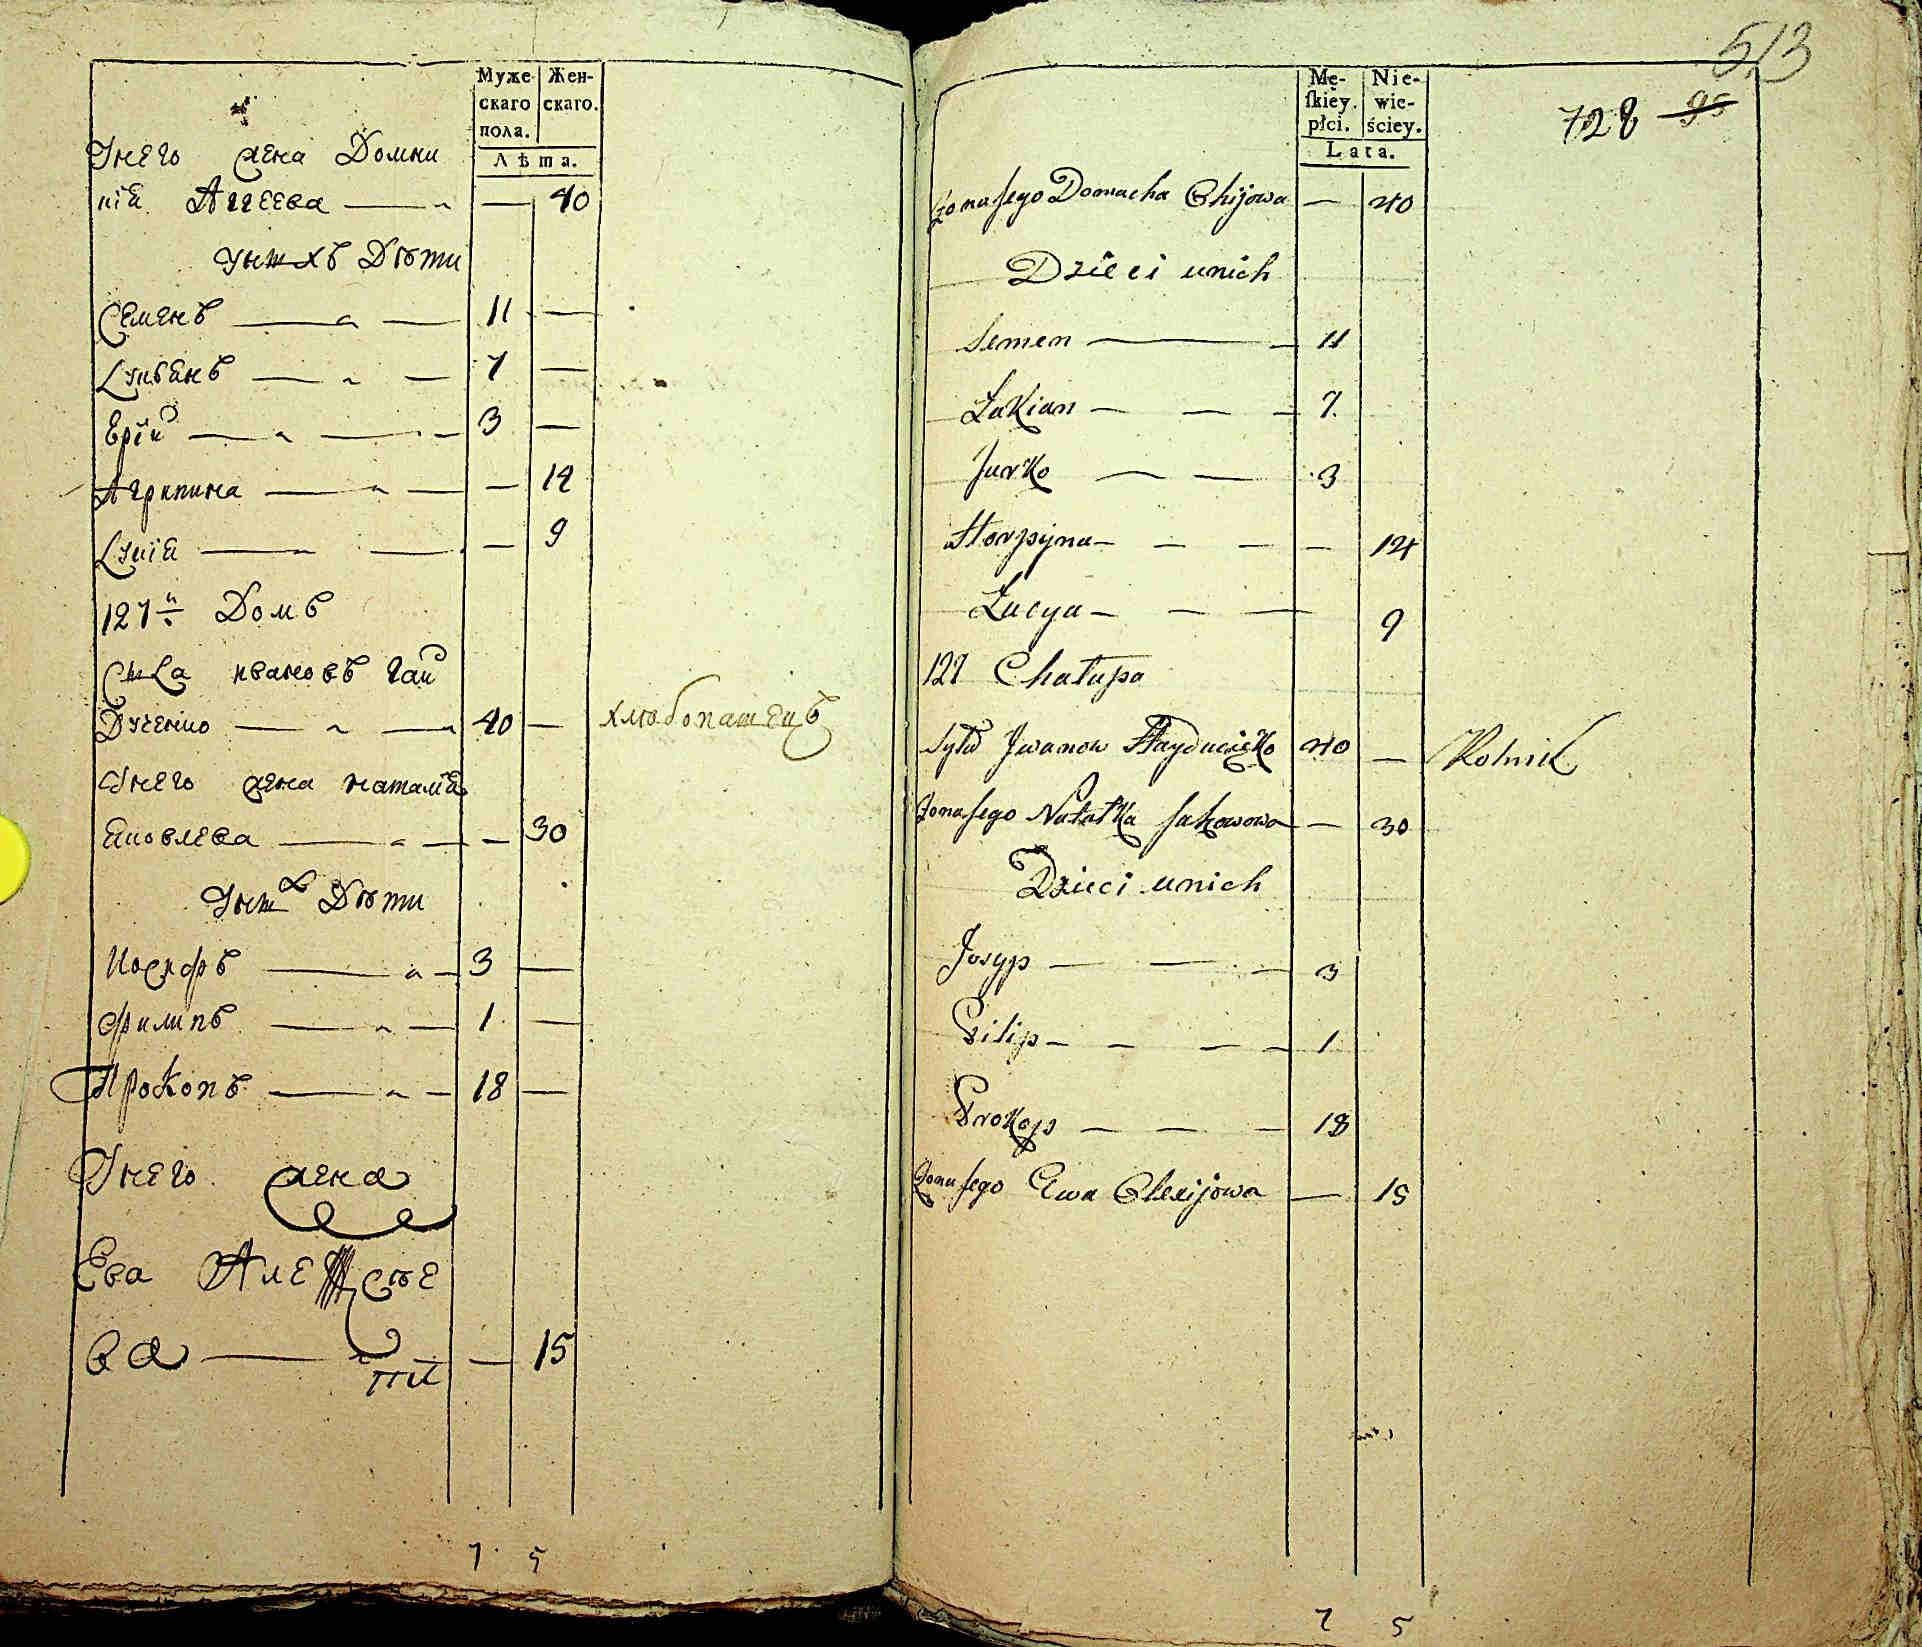 Муже
скаго
пола.
Жен-
скаго.
Лѣта.
Унего жена Домни
кіа Агеева — — 40
унихъ Дѣти
Семенъ — — 11 —
Лукъянъ — — 7 —
Ерій — — 3 —
Агрипина — — — 14
Лукіа — — — 9
127й Домъ
Сила ивановъ гай
Дученко — — 40 — хлѣбопашецъ
Унего жена наталіа
Яковлева — — — 30
Уних Дѣти
Иосифъ — — 3 —
Филипъ — — 1 —
Прокопъ — — 18 —
Унего жена
Ева Але сѣе
ва — — 15
7 5
513
Mę-
skiey.
płci.
Nie-
wie-
ściey.
Lata.
728 95
Zona jego Domacha Ohijowa — 40
Dzieci unich
Semen — — 11
Lukian — — — 7.
Jurko — — 3
Horpyna — — — — 14
Lucya — — — 9
127 Chałupa
Syła Jwanow Hayduczeko 40 — Rolnik
Zona jego Natałka Jakowowa — 30
Dzieci unich
Josyp — — — 3
Pilip — — — — 1
Prokop — — — 18
Zona jego Ewa Olexijowa — 15
7 5